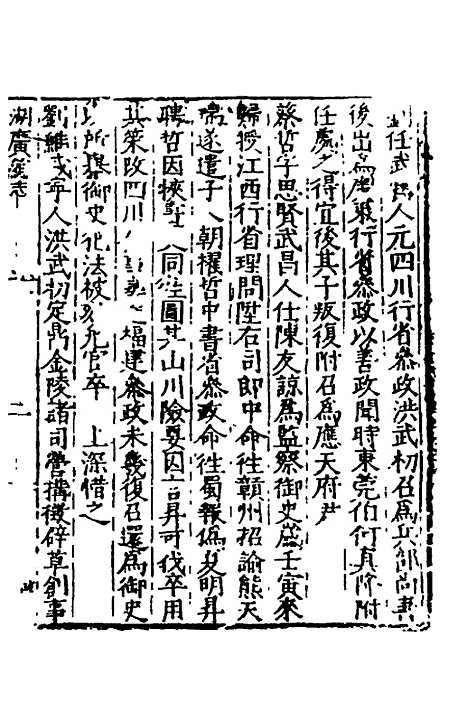 任武昌人元四川行省叅政洪武初召為兵部尚書
後出為廣東行省叅政以善政聞時東莞伯何真降附
任處之得宜後其子叛復附召為應天府尹
蔡哲字思賢武昌人仕陳友諒為監察御史歲壬寅來
歸授江西行省理問陞右司郎中命徃贛州招諭熊天
瑞遂遣子入朝擢哲中書省叅政命徃蜀報偽夏明昇
聘哲因挾畫士同徃圖其山川險要因言昇可伐卒用
其策改四川福建叅政未幾復召還為御史
所舉御史犯法被劾免官卒上深借之
劉維人洪武初定鼎金陵諸司營搆徵辟草創事
湖廣
二